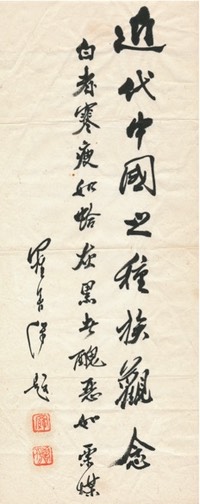 近代中國之種族觀念
白者寒瘦如蛤灰黑者醜惡如栗煤
羅香澤題